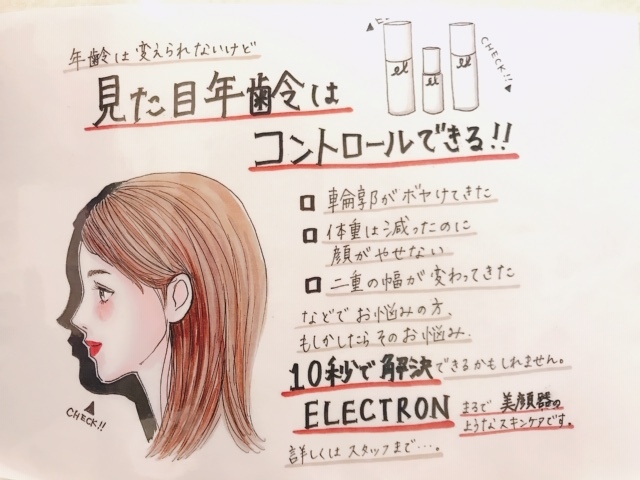 年齢は変えられないけど
見た目年齢は
コントロールできる!!
el
el
el
CHECK!!
輪郭がボヤけてきた
体重は減ったのに
顔がやせない
二重の幅が変わってきた
などでお悩みの方、
もしかしたらそのお悩み、
10秒で解決できるかもしれません。
ELECTRON まるで美顔器の
ようなスキンケアです。
詳しくはスタッフまで…。
CHECK!!